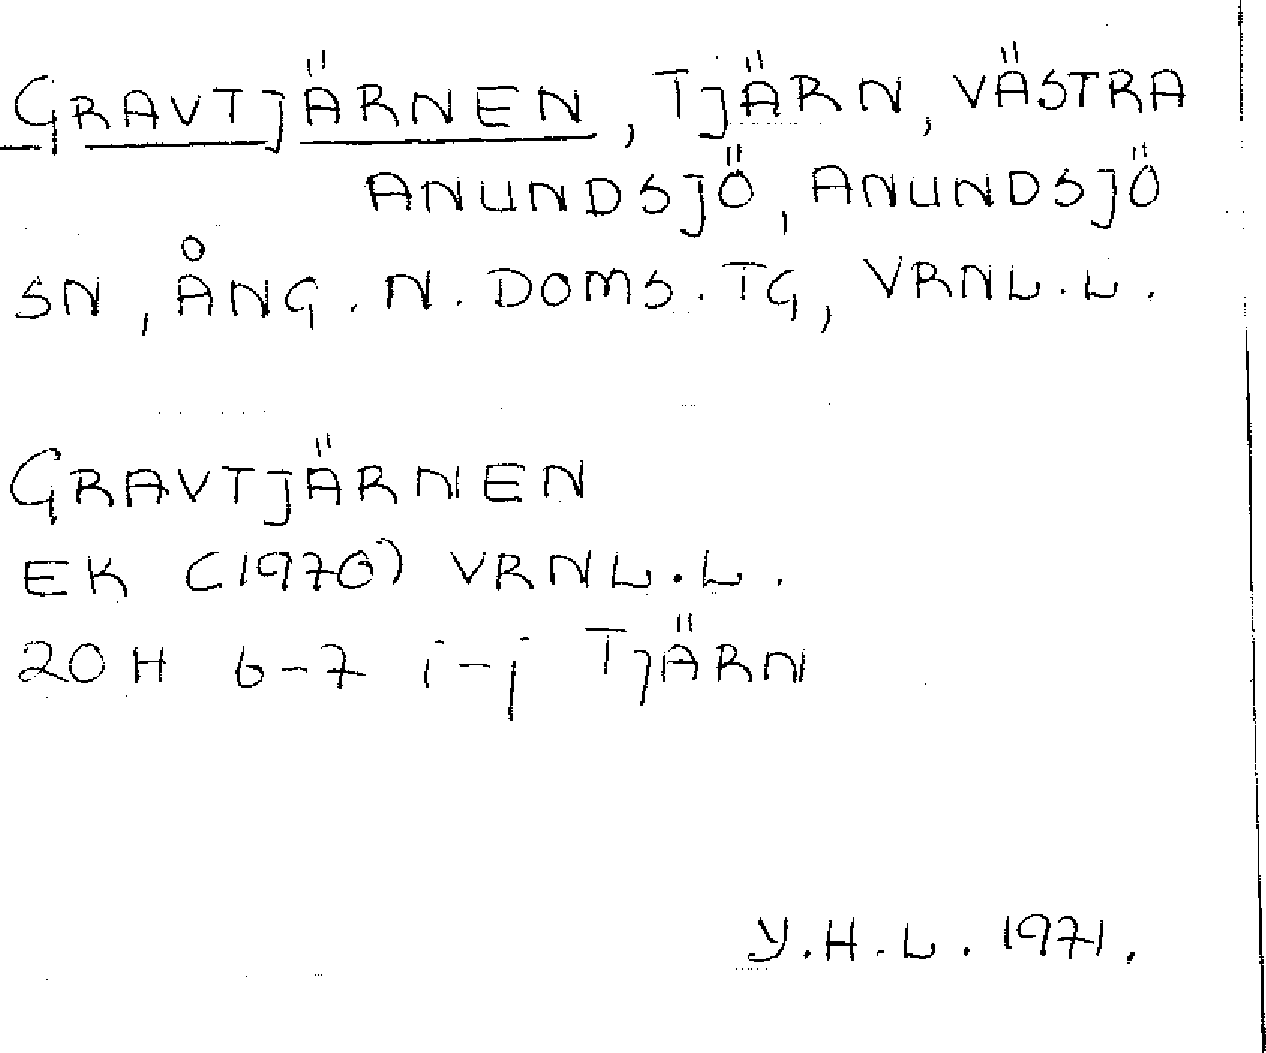 GRAVTJÄRNEN, TJÄRN, VÄSTRA
ANUNDSJÖ, ANUNDSJÖ
SN, ÅNG. N. DOMS. TG, VRNL.L.
GRAVTJÄRNEN
EK (1970) VRNL.L.
20 H 6-7 i-j TJÄRN
Y.H.L. 1971.